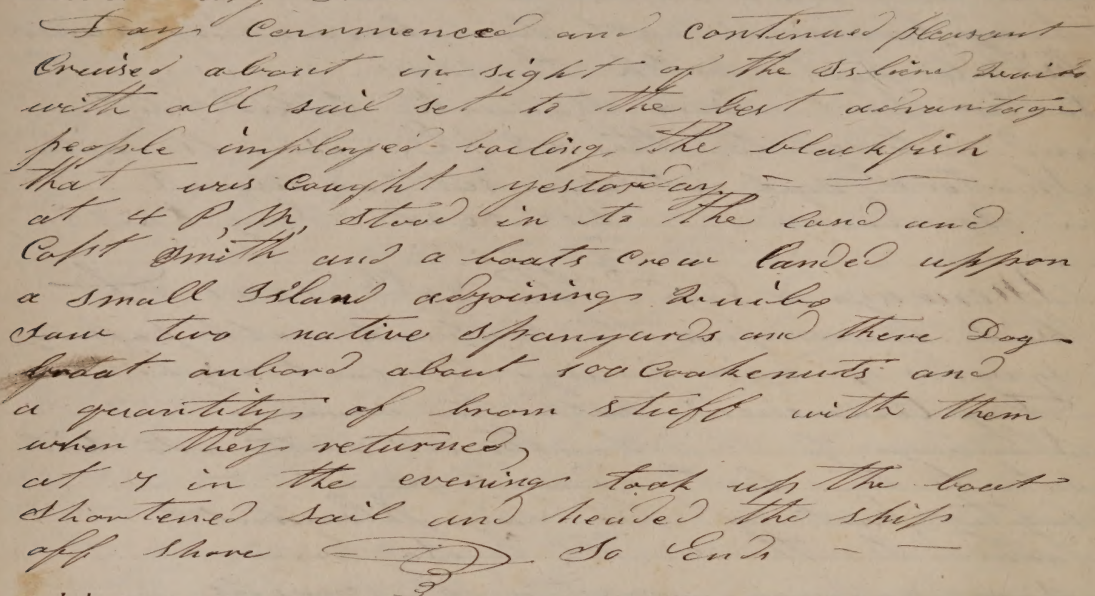 Day commenced and continued pleasant
Cruised about in sight of the Island Quibo
with all sail set to the best advantage
people imployed boiling, the blackfish
that was caught yestorday
at 4 P, M, stood in to the land and
Capt Smith and a boats crew landed uppon
a small Island adjoining Quibo
saw two native Spanyurds and there Dog
braat onbord about 100 Coakenuts and
a quantity of brom stuff with them
when they returned,
at 7 in the evening took up the boat
shortened sail and headed the ship
off shore So Ends